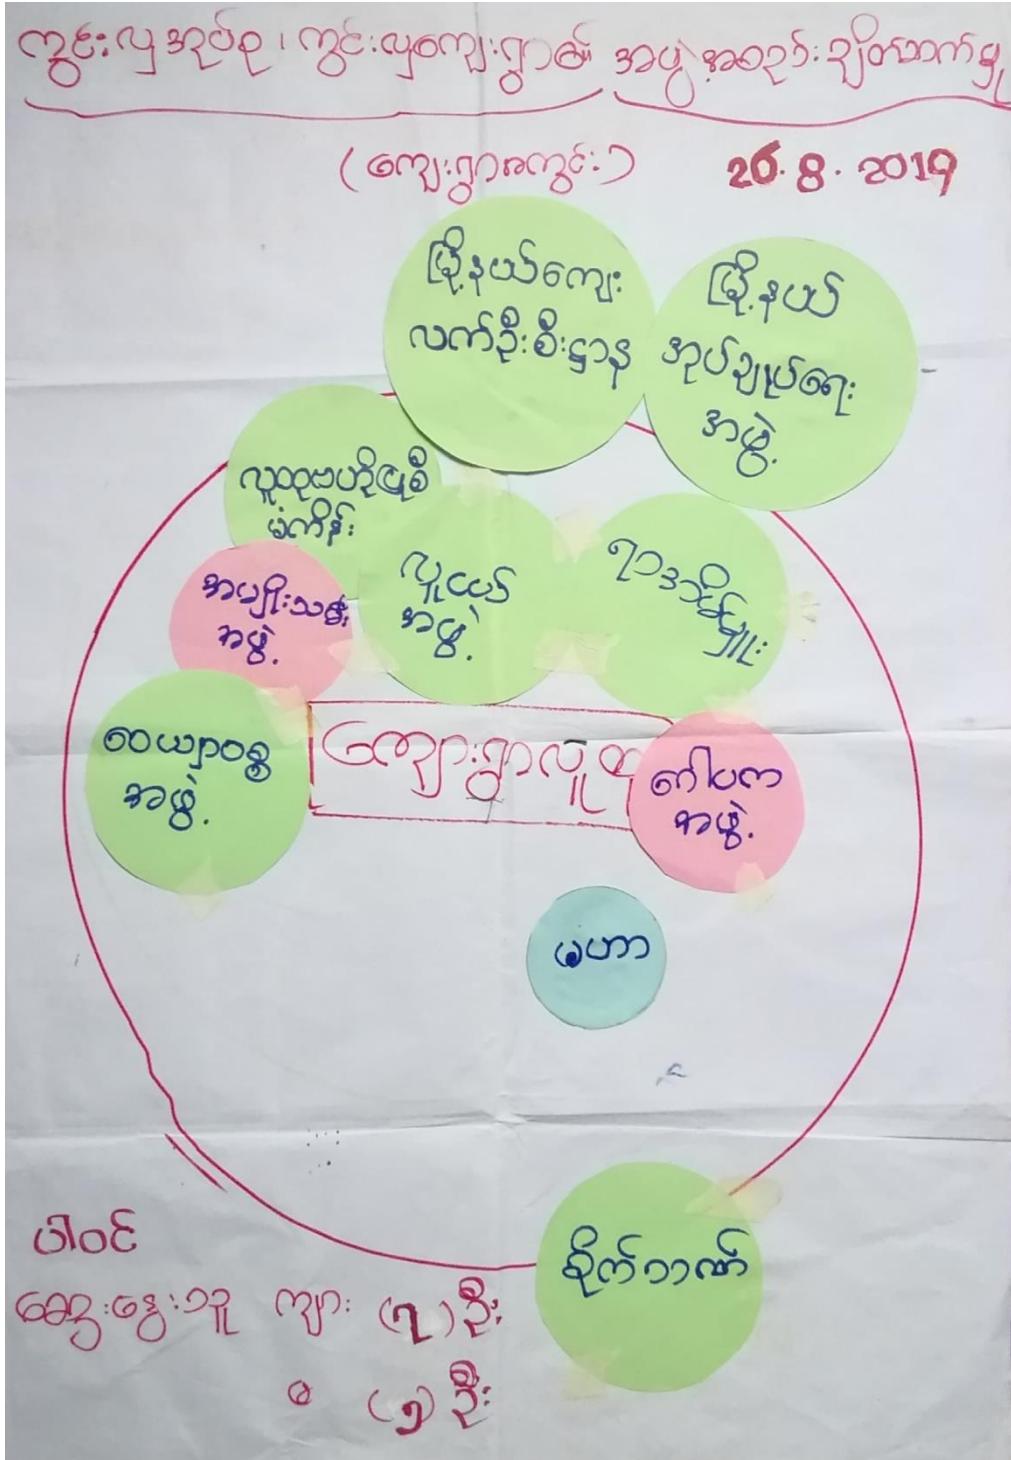 ကွင်းလှအုပ်စု၊ ကွင်းလှကျေးရွာ၏ အဖွဲ့အစည်းချိတ်ဆက်မှု
(ကျေးရွာစကွင်း ၁)
26.8.2019
မြို့နယ်ကျေး
လက်ဦးစီးဌာန
မြို့နယ်
အုပ်ချုပ်ရေး
အဖွဲ့
လူထုဗဟိုပြုစီ
မံကိန်း
လူငယ်
အဖွဲ့
ရာအိမ်မှူး
အမျိုးသမီး
အဖွဲ့
ဝေယျာဝစ္စ
အဖွဲ့
ကျေးရွာလူထု
ဂေါပက
အဖွဲ့
မဟာ
စိုက်ဘဏ်
ပါဝင်
ဆွေးနွေးသူ ကျား (၇) ဦး
မ (၅) ဦး